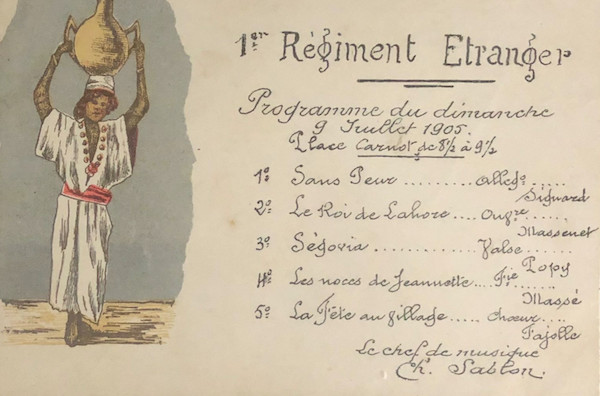 1er Régiment Etranger
Programme du dimanche
9 Juillet 1905.
Place Carnot de 8½ à 9½
1º Sans Peur ......... Allegº .....
Signard
2º Le Roi de Lahore .... Ouvre ......
Massenet
3º Ségovia ............... Valse .....
Popy
4º Les noces de Jeannette ... Fie .....
Massé
5º La Fête au village ..... chœur ....
Fajolle
Le chef de musique
Ch. Sablon.